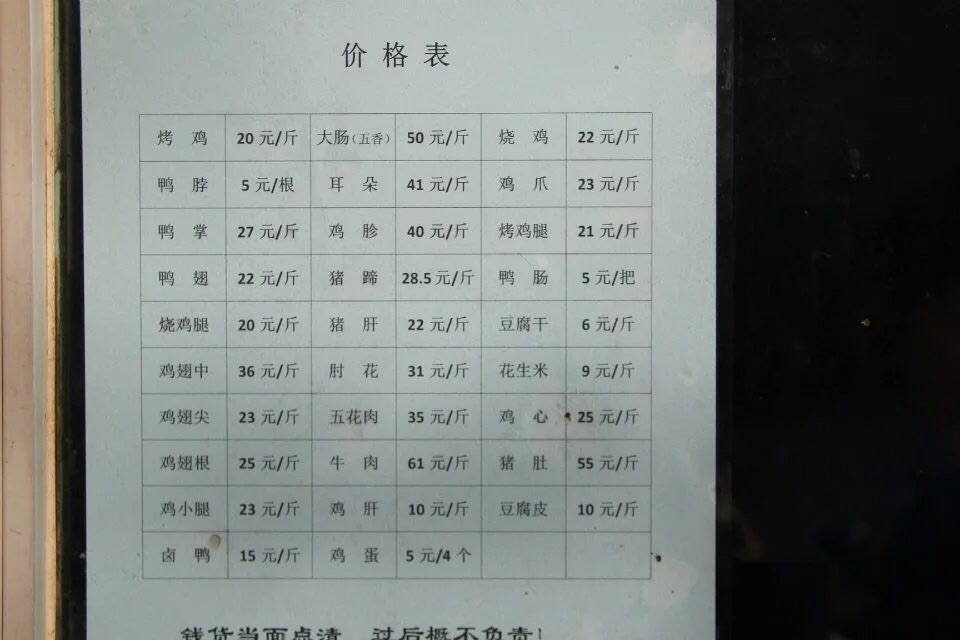 价格表
烤鸡 20元/斤 大肠(五香) 50元/斤 烧鸡 22元/斤
鸭脖 5元/根 耳朵 41元/斤 鸡爪 23元/斤
鸭掌 27元/斤 鸡胗 40元/斤 烤鸡腿 21元/斤
鸭翅 22元/斤 猪蹄 28.5元/斤 鸭肠 5元/把
烧鸡腿 20元/斤 猪肝 22元/斤 豆腐干 6元/斤
鸡翅中 36元/斤 肘花 31元/斤 花生米 9元/斤
鸡翅尖 23元/斤 五花肉 35元/斤 鸡心 25元/斤
鸡翅根 25元/斤 牛肉 61元/斤 猪肚 55元/斤
鸡小腿 23元/斤 鸡肝 10元/斤 豆腐皮 10元/斤
卤鸭 15元/斤 鸡蛋 5元/4个
钱货当面点清 过后概不负责!